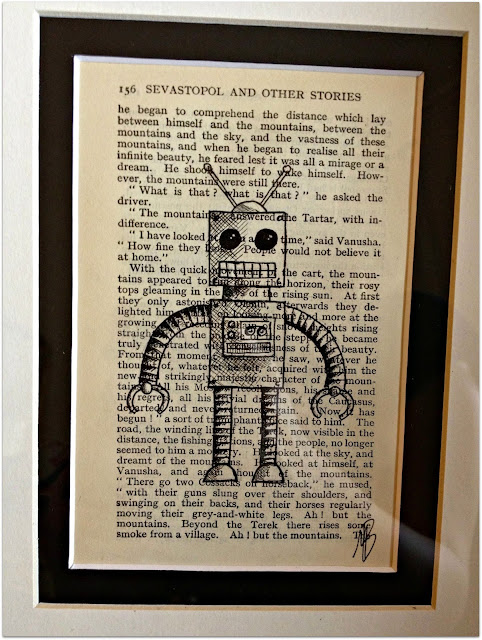 156 SEVASTOPOL AND OTHER STORIES
he began to comprehend the distance which lay
between himself and the mountains, between the
mountains and the sky, and the vastness of these
mountains, and when he began to realise all their
infinite beauty, he feared lest it was all a mirage or a
dream. He shook himself to wake himself. How-
ever, the mountains were still there.
" What is that ? what is that ? " he asked the
driver.
" The mountains, answered the Tartar, with in-
difference.
" I have looked time," said Vanusha.
" How fine they People would not believe it
at home."
With the quick movement the cart, the moun-
tains appeared along the horizon, their rosy
tops gleaming in the of the rising sun. At first
they only afterwards they de-
lighted him more at the
growing rising
straight the he became
truly of the beauty.
From moment he saw, whatever he
thought of, whatever he felt, acquired the
new, strikingly majestic character of the moun-
tains all his his and
his all of the Caucasus,
departed and never returned again. " Now it has
begun ! " a sort of triumphant voice said to him. The
road, the winding line of the now visible in the
distance, the fishing and the people, no longer
seemed to him a He looked at the sky, and
dreamt of the mountains. looked at himself, at
Vanusha, and again thought of the mountains.
" There go two Cossacks on horseback," he mused,
" with their guns slung over their shoulders, and
swinging on their backs, and their horses regularly
moving their grey-and-white legs. Ah ! but the
mountains. Beyond the Terek there rises some
smoke from a village. Ah ! but the mountains. The